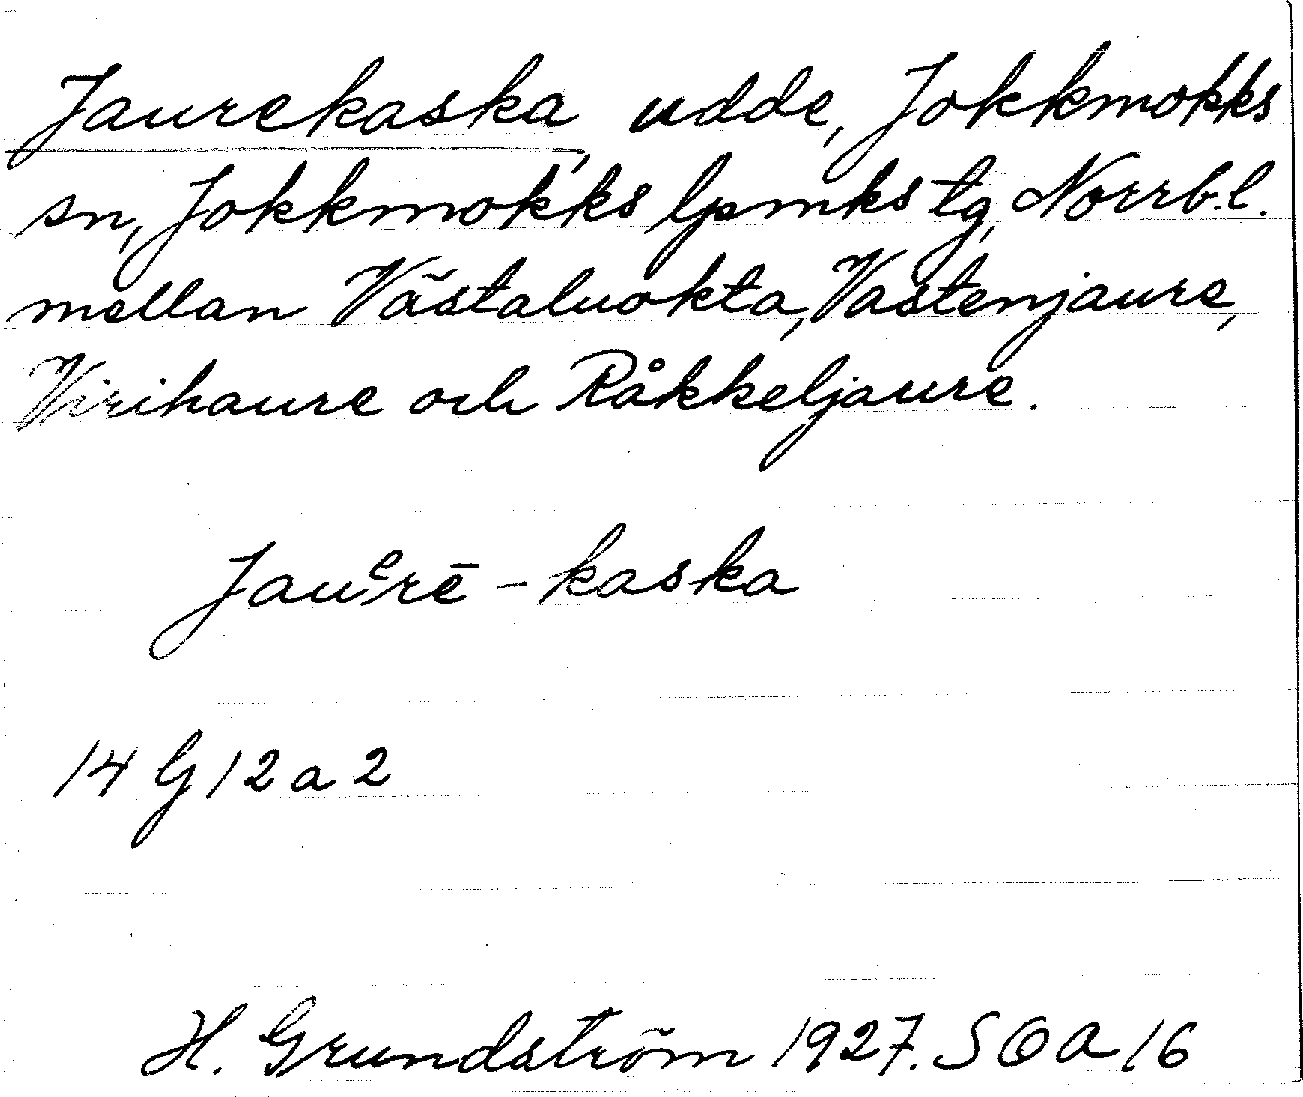 Jaurekaska, udde, Jokkmokks
sn, Jokkmokks lpmks tg, Norrb.l.
mellan Västaluokta, Vastenjaure,
Virihaure och Råkkeljaure.
Jauᵉrē - kaska
14 G 12 a 2
H. Grundström 1927. SOA 16